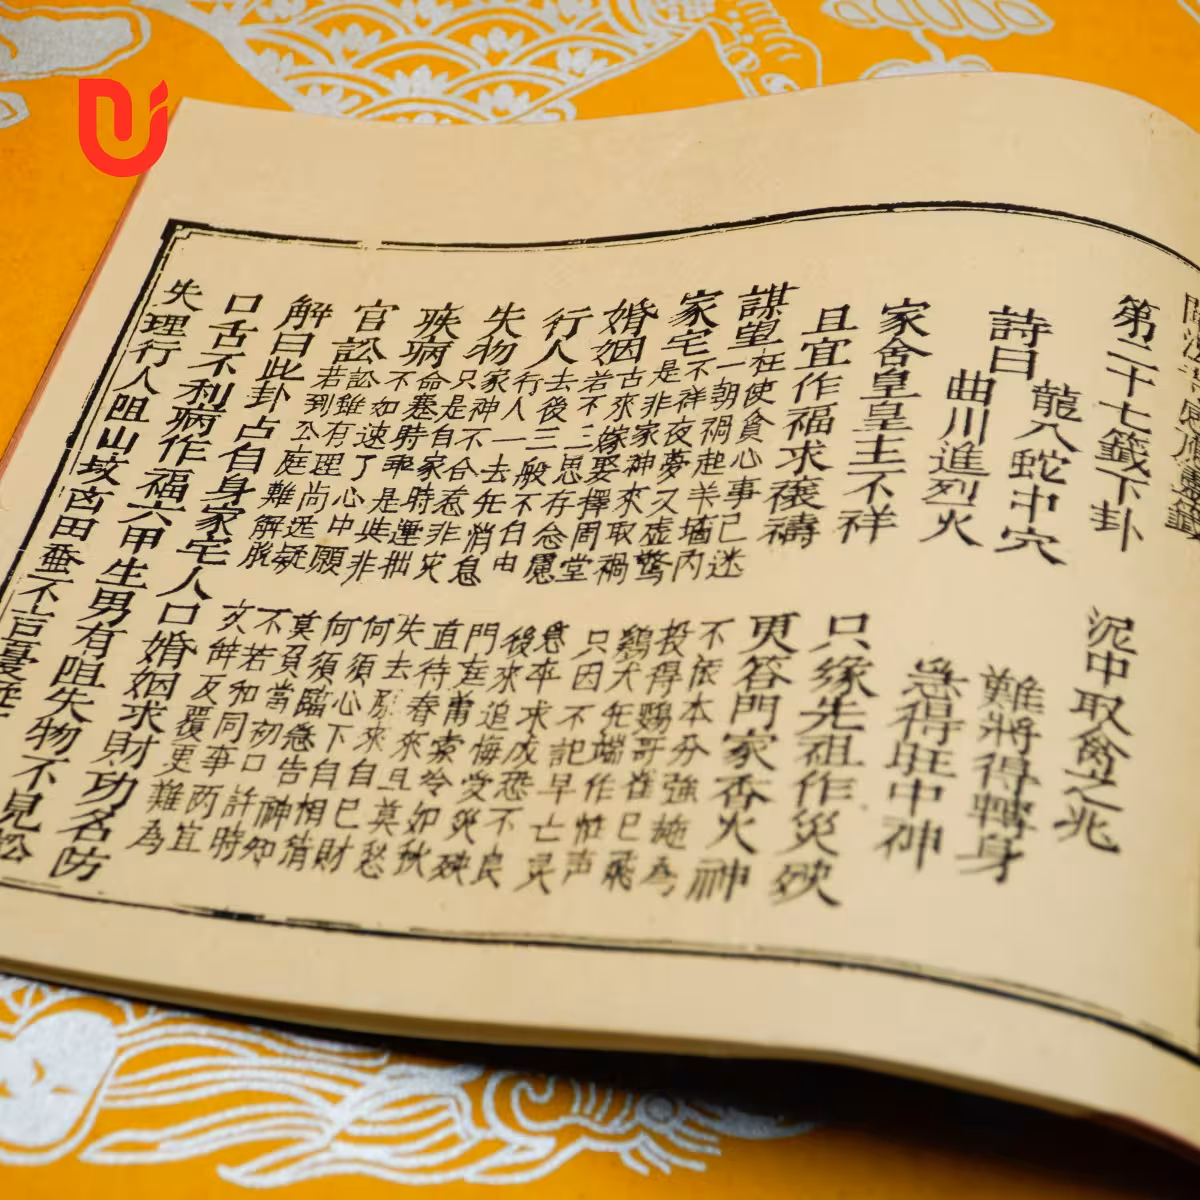 第二十七籤下卦 泥中取 之兆
詩曰 龍入蛇中穴 難將得轉身
曲川進烈火 急得旺中神
家舍皇皇主不祥 只緣先祖作災殃
且宜作福求禳禱 更答門家香火神
謀望 枉使貪心事已迷 不依本分強 為
一朝禍起羊墻內 投得鷄哥雀已飛
家宅 不祥夜夢又虛驚 鷄犬先端作 声
是非家神來取禍 只因不記早亡灵
婚姻 古來嫁娶擇周堂 急卒求成恐不良
若不二思存念慮 後來追悔受災殃
行人 去後三般不自由 門庭蕭索冷如秋
行人一去先消息 直待春來且莫愁
失物 家神不合惹非灾 失去 來自 財
只是自家時運拙 何須心下自
疾病 命蹇時乖是 非 何須臨急告神知
不如速了 莫負當初口許時
官訟 訟雖有理心中願 不若和同事两宜
若到公庭難解脫 反覆更難為
解曰此卦占自身家宅人口婚姻求財功名防
口舌不利病作福六甲生男有阻失物不見訟
失理行人阻山坟 田蚕不